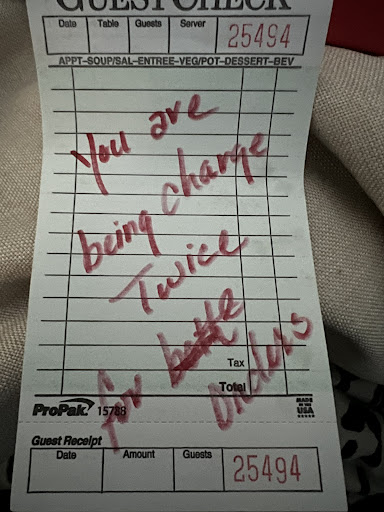 GUEST CHECK
Date Table Guests Server
25494
APPT-SOUP/SAL-ENTREE-VEG/POT-DESSERT-BEV
You are
being charge
Twice
for
orders
Tax
Total
ProPak 15788
MADE IN THE USA
Guest Receipt
Date Amount Guests
25494